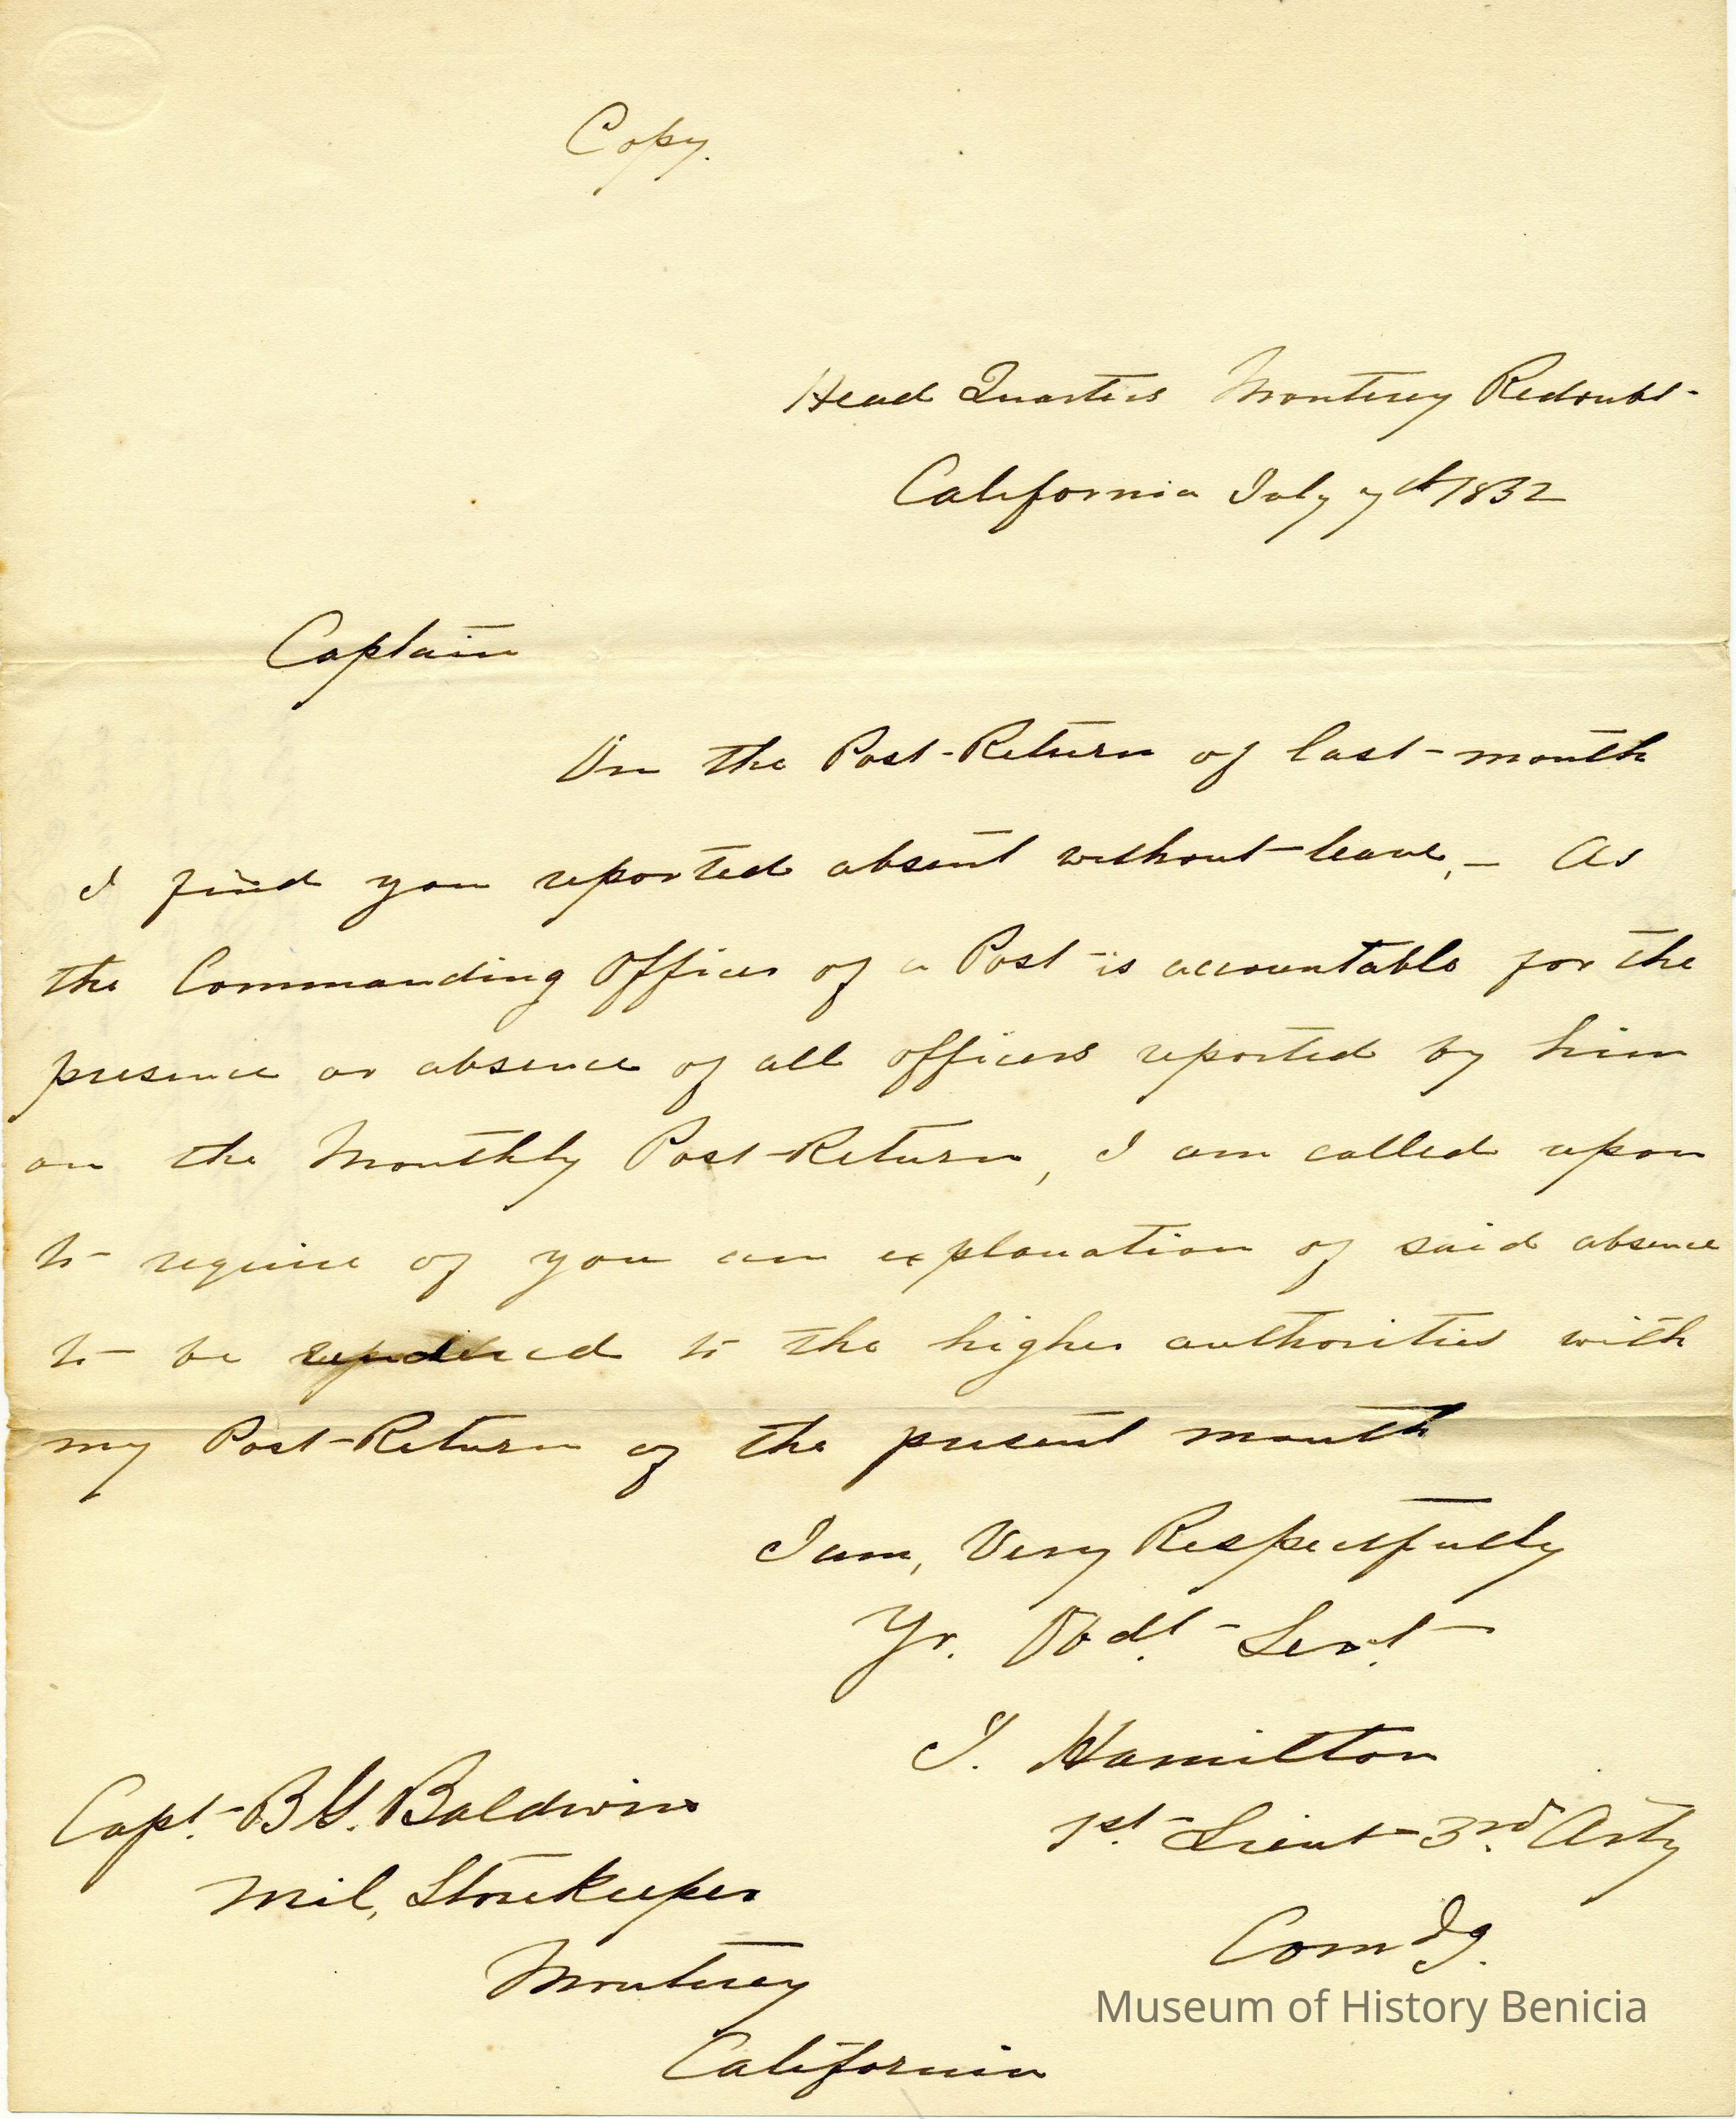 Copy.
Head Quarters Monterey Redoubt-
California July 7th 1832
Captain
On the Post-Return of last-month
I find you reported absent without-leave,- As
the Commanding Officer of a Post-is accountable for the
presence or absence of all officers reported by him
on the Monthly Post-Return, I am called upon
to require of you an explanation of said absence
to be rendered to the higher authorities with
my Post-Return of the present month
I am, Very Respectfully
Yr. Obdt.- Servt.-
J. Hamilton
1st.- Lieut- 3rd. Arty
Comdg.
Capt.- Baldwin
Mil, Storekeeper
Monterey
California
Museum of History Benicia